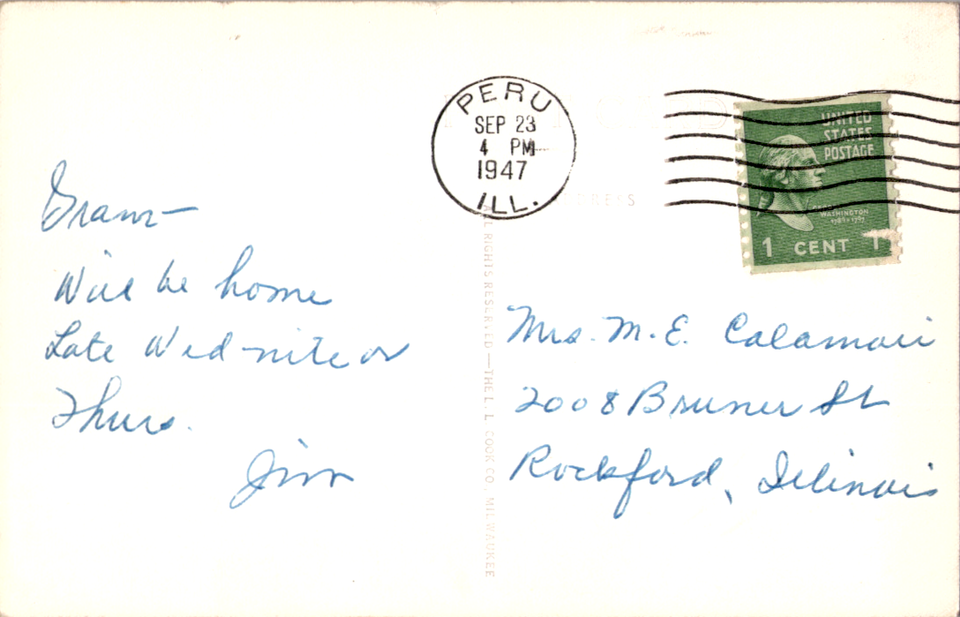 PERU
SEP 23
4 PM
1947
ILL.
UNITED
STATES
POSTAGE
WASHINGTON
1 CENT 1
Gram—
Will be home
Late Wed-nite or
Thurs.
Jim
ALL RIGHTS RESERVED—THE L. L. COOK CO., MILWAUKEE
Mrs. M. E.
2008 Bruner St
Rockford, Illinois